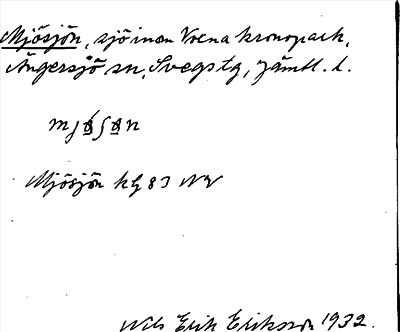 Mjösjön, sjö inom Voxna kronopark,
Ängersjö sn, Svegs tg, Jämtl. l.
Mjösjön kg 83 NV
Nils Erik Eriksson 1932.